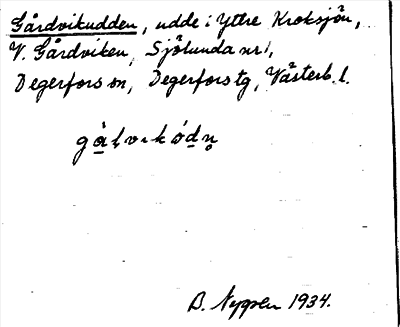 Gårdvikudden, udde i Yttre Kroksjön,
V. Gårdviken, Sjölunda nr 1,
Degerfors sn, Degerfors tg, Västerb. l.
B. Nygren 1934.